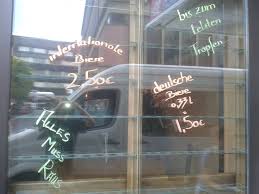 internationale
Biere
2,50€
bis zum
letzten
Tropfen
deutsche
Biere
0,33 l
1,50€
ALLES
MUSS
RAUS